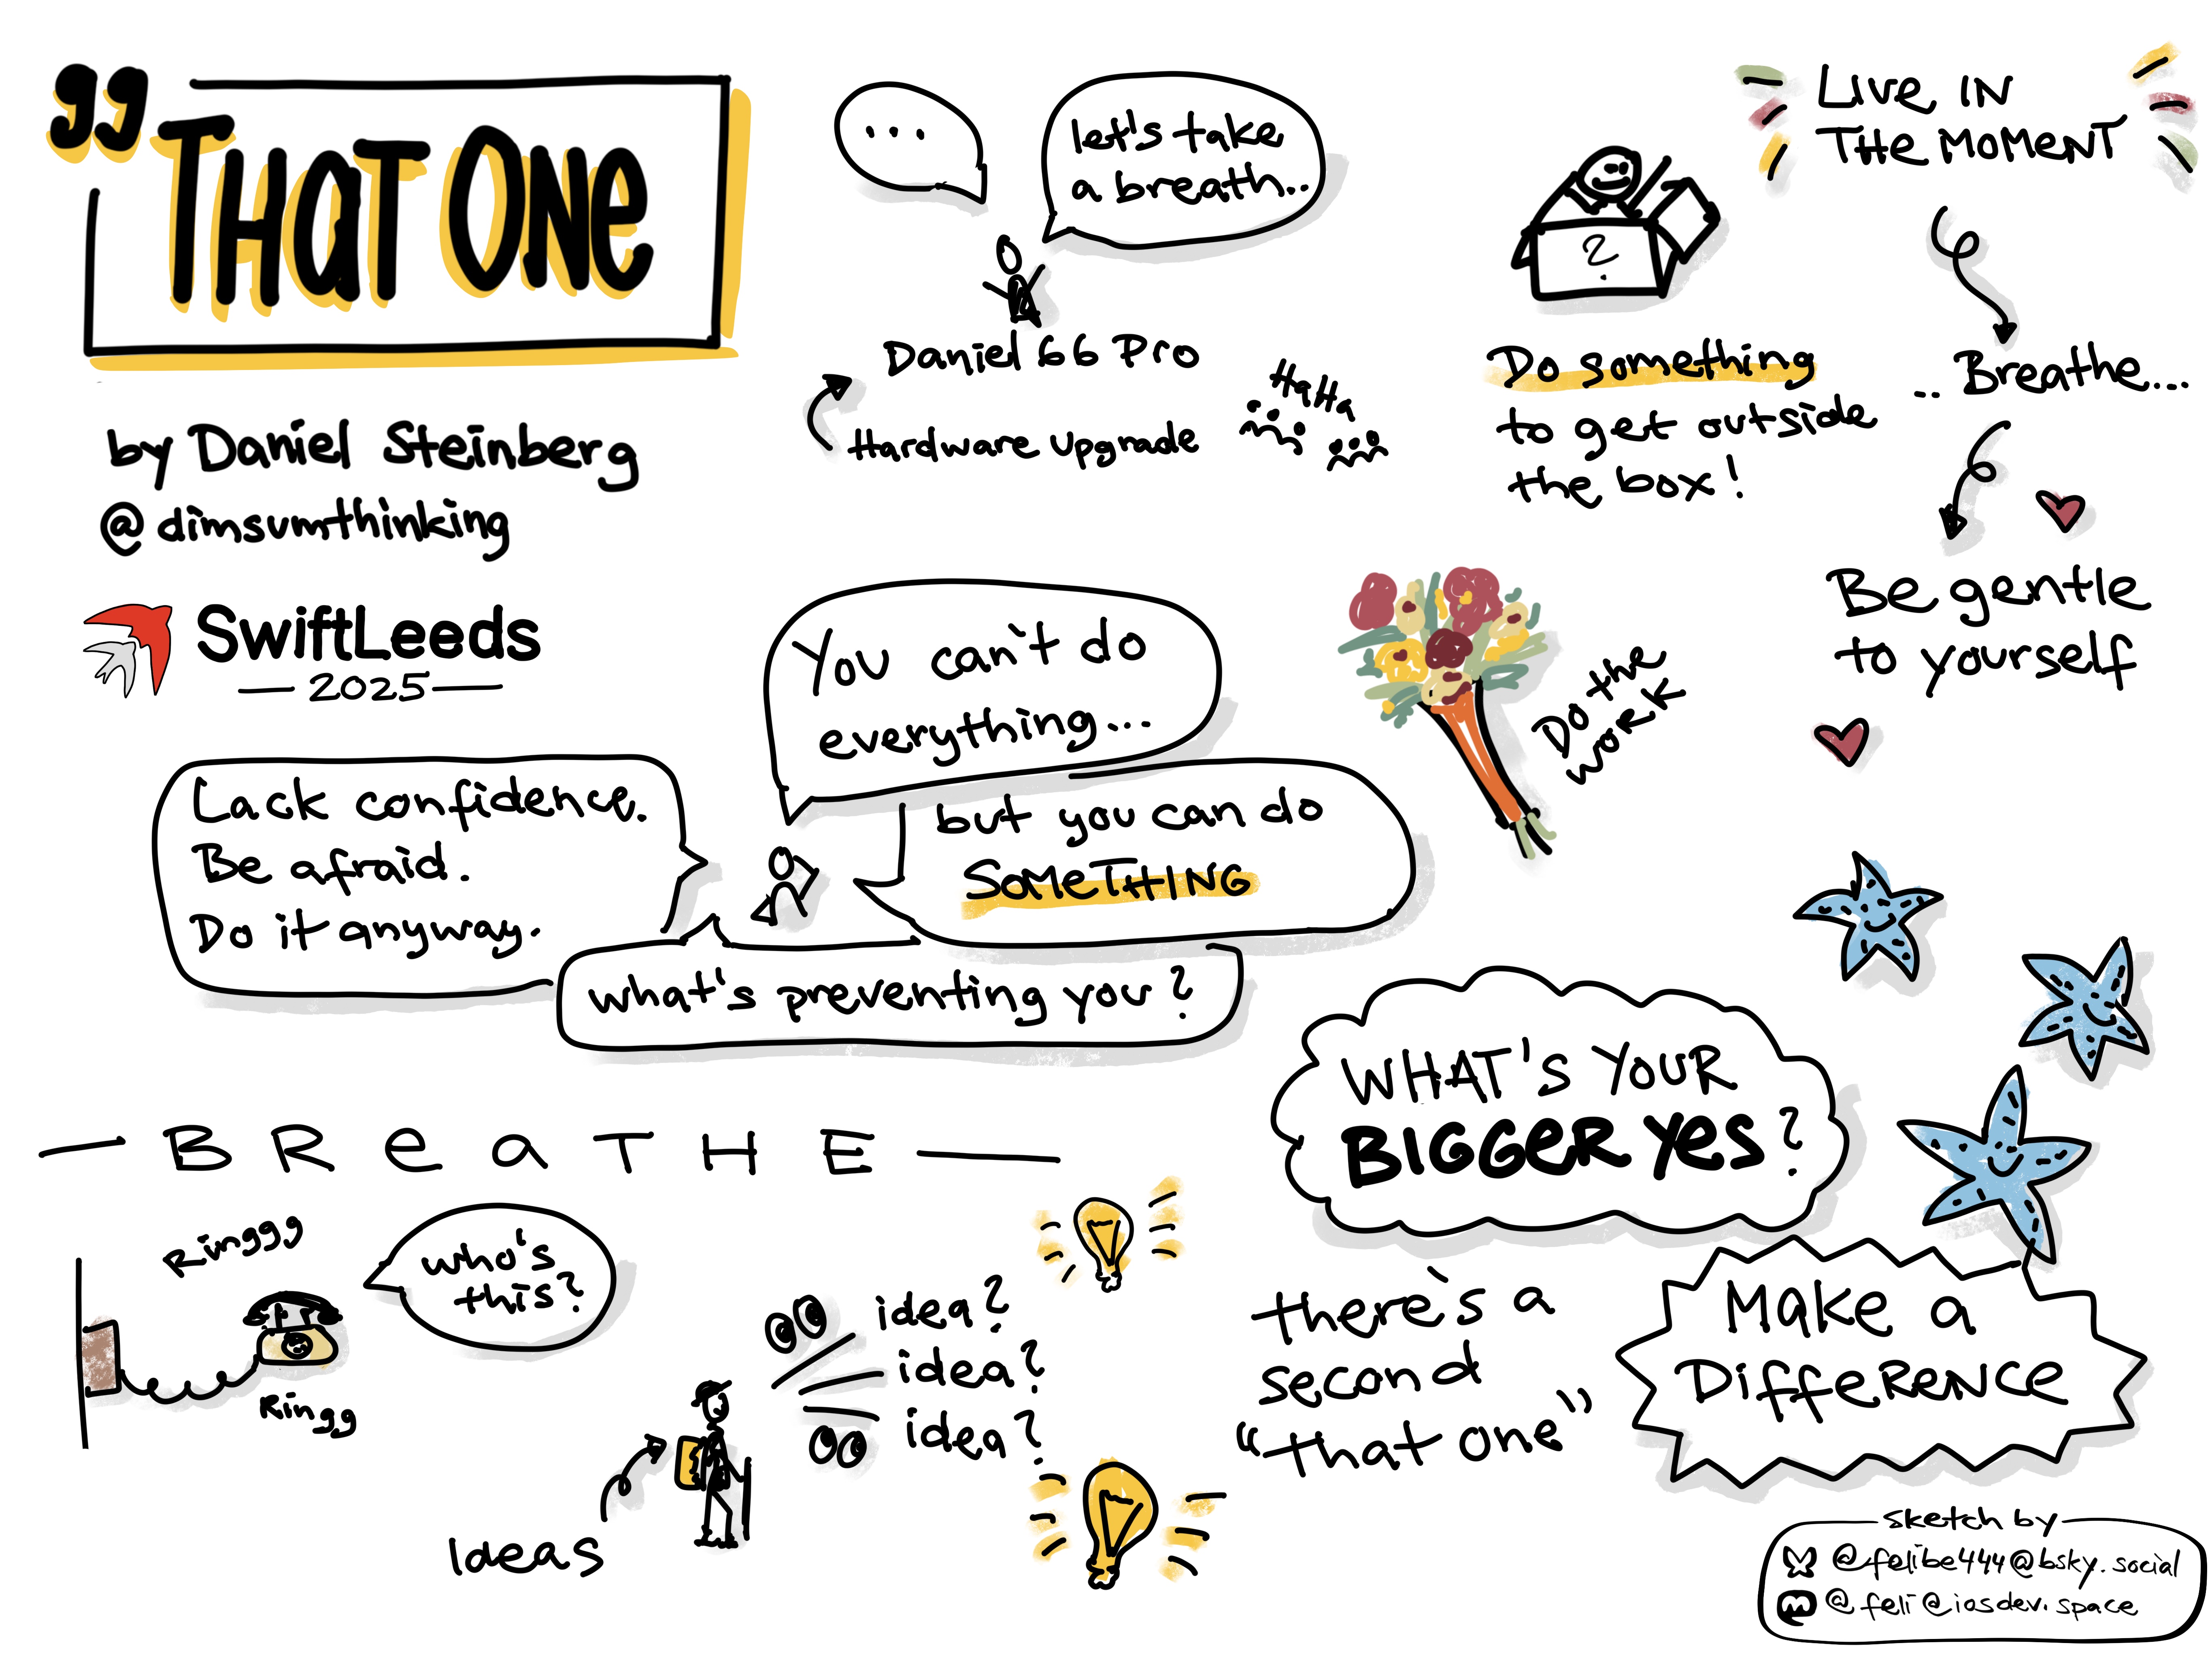 "THAT ONE
by Daniel Steinberg
@dimsumthinking
SwiftLeeds
2025
...
let's take
a breath..
Daniel 66 Pro
Hardware Upgrade
HaHa
?
Do something
to get outside
the box!
LIVE IN
THE MOMENT
.. Breathe...
Be gentle
to yourself
You can't do
everything...
but you can do
SOMETHING
Lack confidence.
Be afraid.
Do it anyway.
what's preventing you?
Do the
work
WHAT'S YOUR
BIGGER YES?
BREATHE
Ringgg
who's
this?
Ringg
Ideas
idea?
idea?
idea?
there's a
second
"that one"
Make a
Difference
sketch by
@felibe444@bsky.social
@feli@iosdev.space